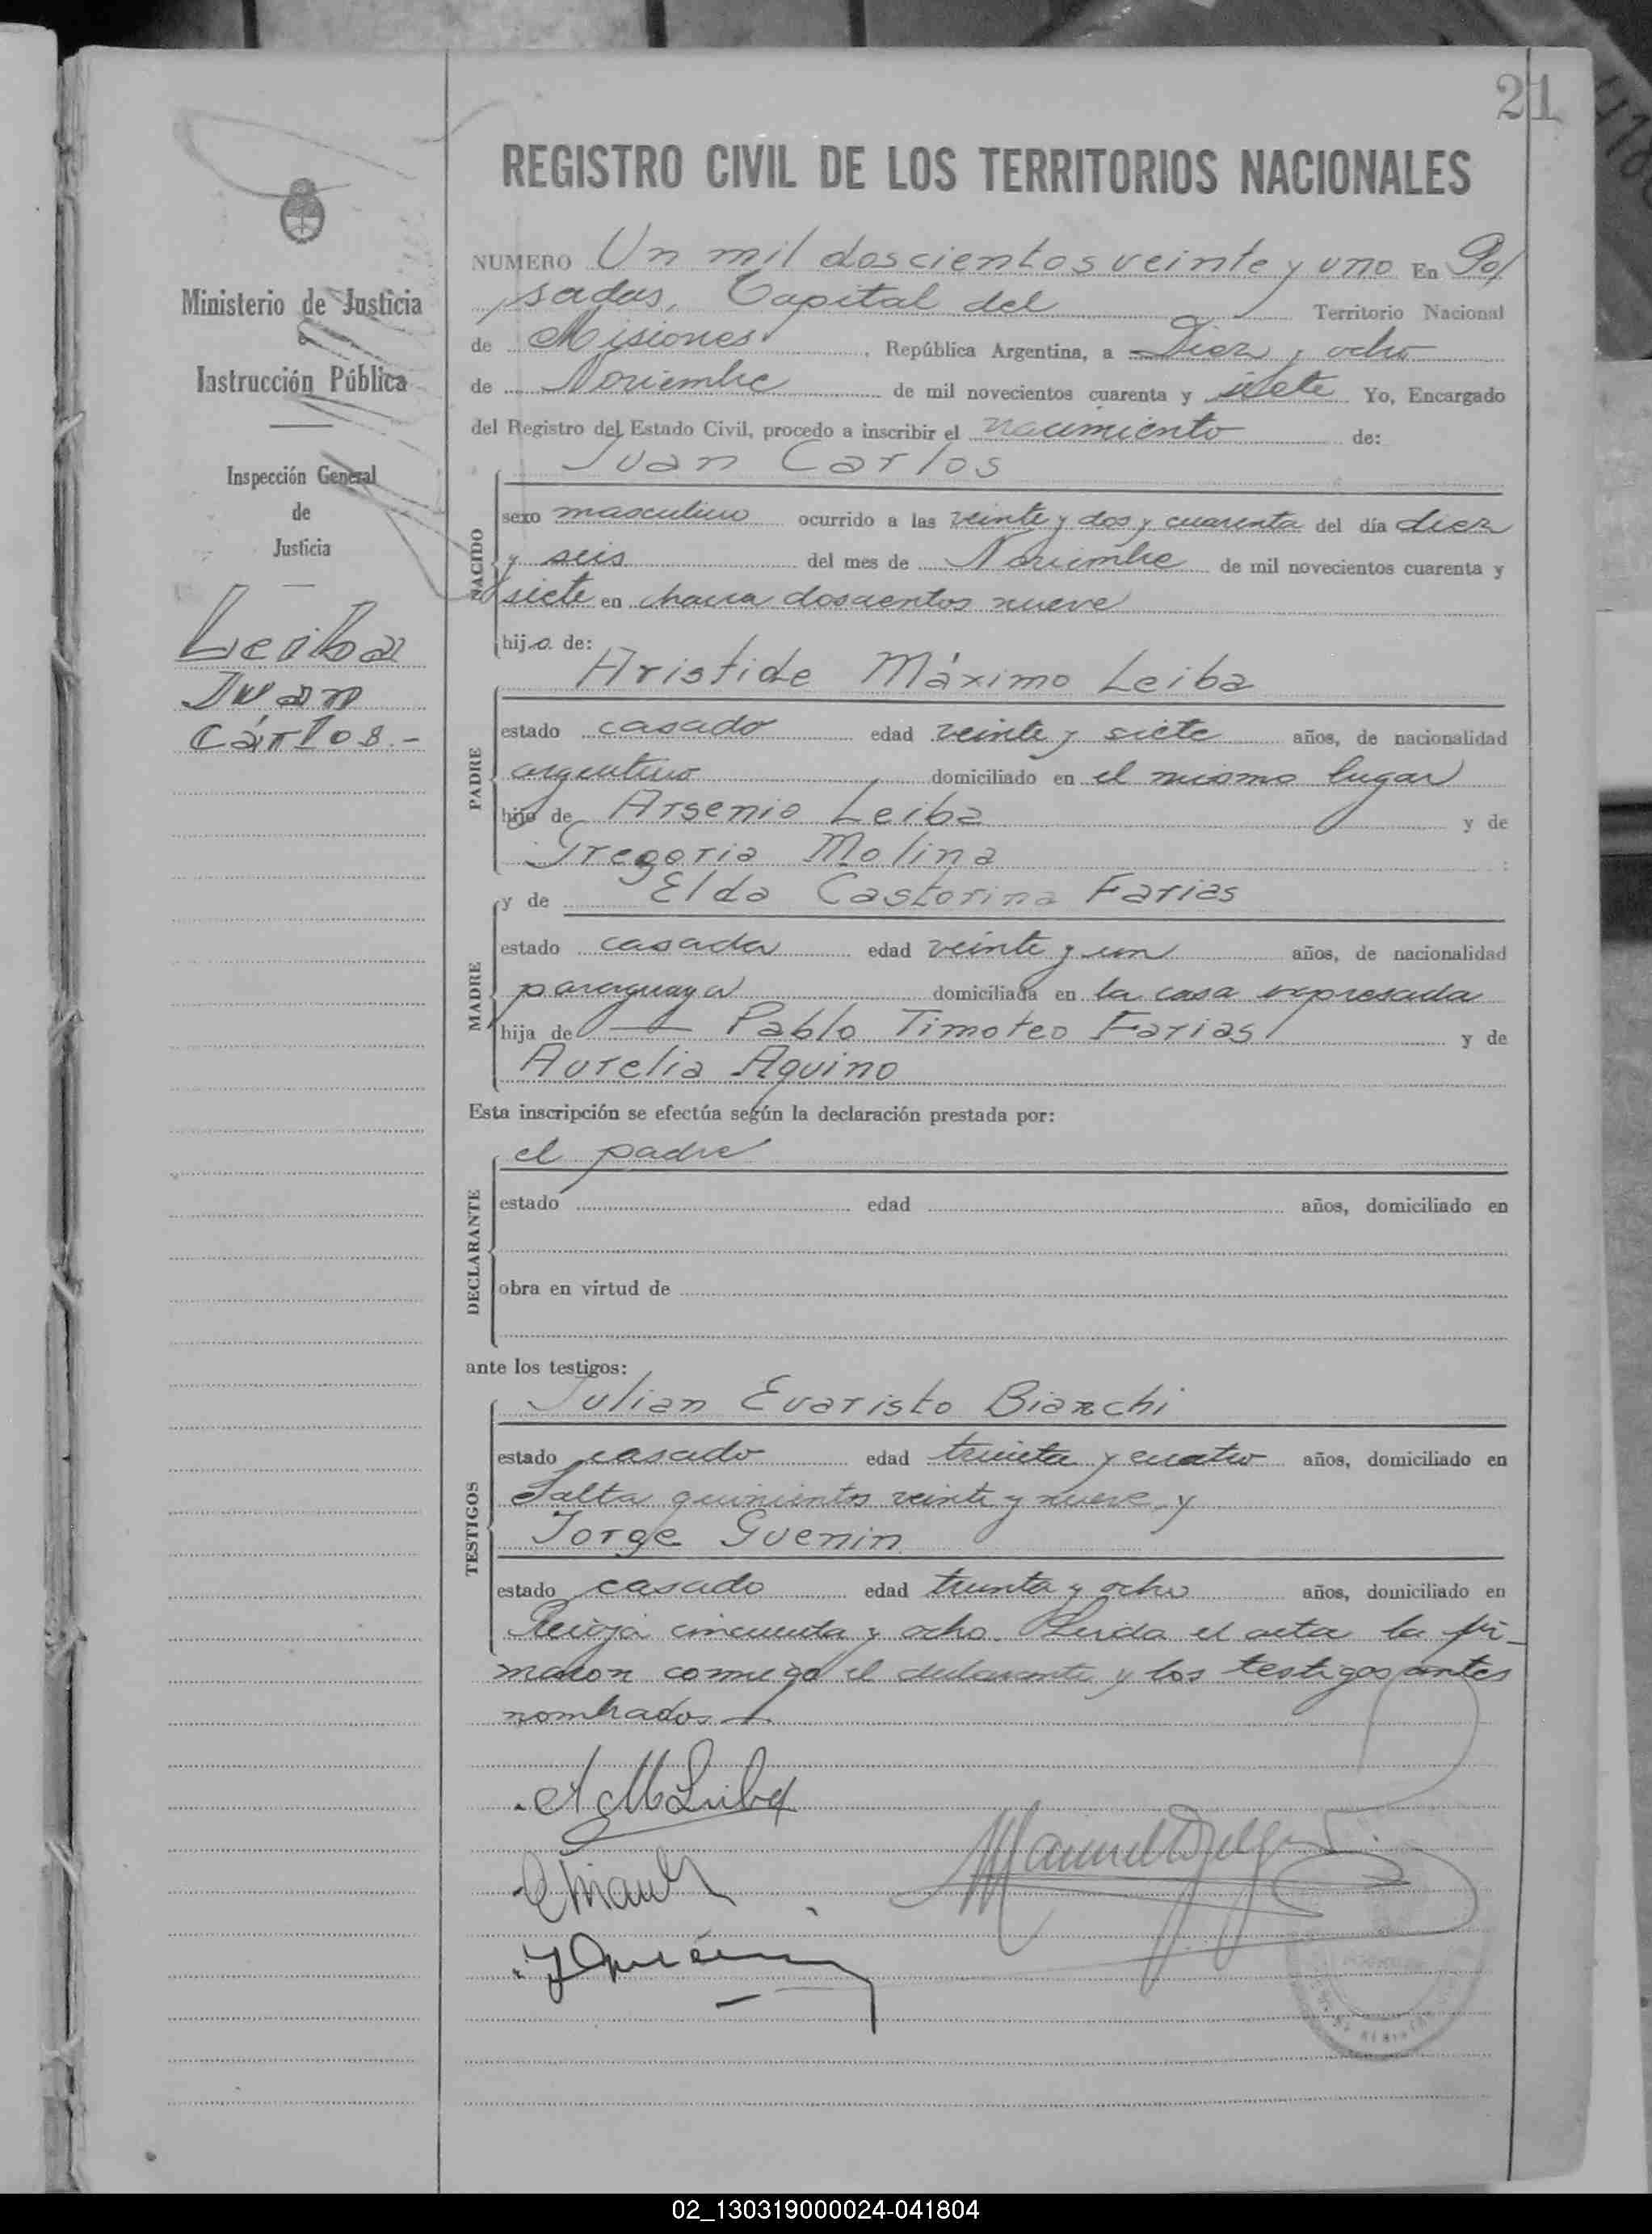 21
REGISTRO CIVIL DE LOS TERRITORIOS NACIONALES
Ministerio de Justicia
e
Instrucción Pública
Inspección General
de
Justicia
Leiba
Juan
Cárlos.-
NUMERO Un mil doscientos veinte y uno En Po/
sadas, Capital del Territorio Nacional
de Misiones, República Argentina, a Diez y ocho
de Noviembre de mil novecientos cuarenta y siete Yo, Encargado
del Registro del Estado Civil, procedo a inscribir el nacimiento de:
Juan Carlos
NACIDO
sexo masculino ocurrido a las veinte y dos y cuarenta del día diez
y seis del mes de Noviembre de mil novecientos cuarenta y
siete en chacra doscientos nueve
hijo de:
Aristide Máximo Leiba
PADRE
estado casado edad veinte y siete años, de nacionalidad
argentino domiciliado en el mismo lugar
hijo de Arsenio Leiba y de
Gregoria Molina
y de Elda Castorina Farias
MADRE
estado casada edad veinte y un años, de nacionalidad
paraguaya domiciliada en la casa expresada
hija de Pablo Timoteo Farias y de
Aurelia Aquino
Esta inscripción se efectúa según la declaración prestada por:
el padre
DECLARANTE
estado edad años, domiciliado en
obra en virtud de
ante los testigos:
Julian Evaristo Bianchi
TESTIGOS
estado casado edad treinta y cuatro años, domiciliado en
Salta quinientos veinte y nueve y
Jorge Guenin
estado casado edad treinta y ocho años, domiciliado en
Rioja cincuenta y ocho. Leida el acta la fir-
maron conmigo el declarante y los testigos antes
nombrados.
A M Leiba
02_130319000024-041804